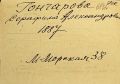 Гончарова
Серафима Александровна
1887
М. Морская 38